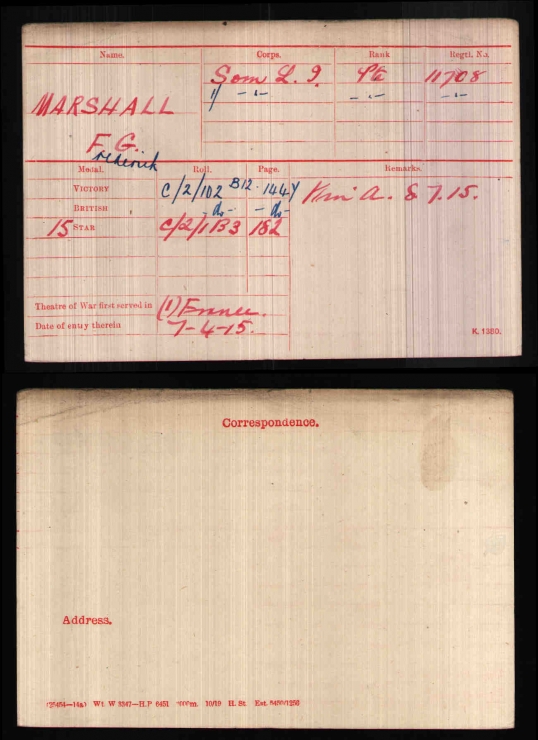 Name. Corps. Rank Regtl. No.
Som L. I. Pte 11708
" -"- -"- -"-
MARSHALL
F. G.
rederick
Medal. Roll. Page. Remarks.
VICTORY C/2/102 B12 1444 K in A. 8.7.15.
BRITISH - do - - do -
15 STAR C/2/1B3 152
Theatre of War first served in (1) France.
Date of entry therein 7-4-15.
K. 1380.
Correspondence.
Address.
Wt. W 5347—H.P 6451 10/19 H. St.